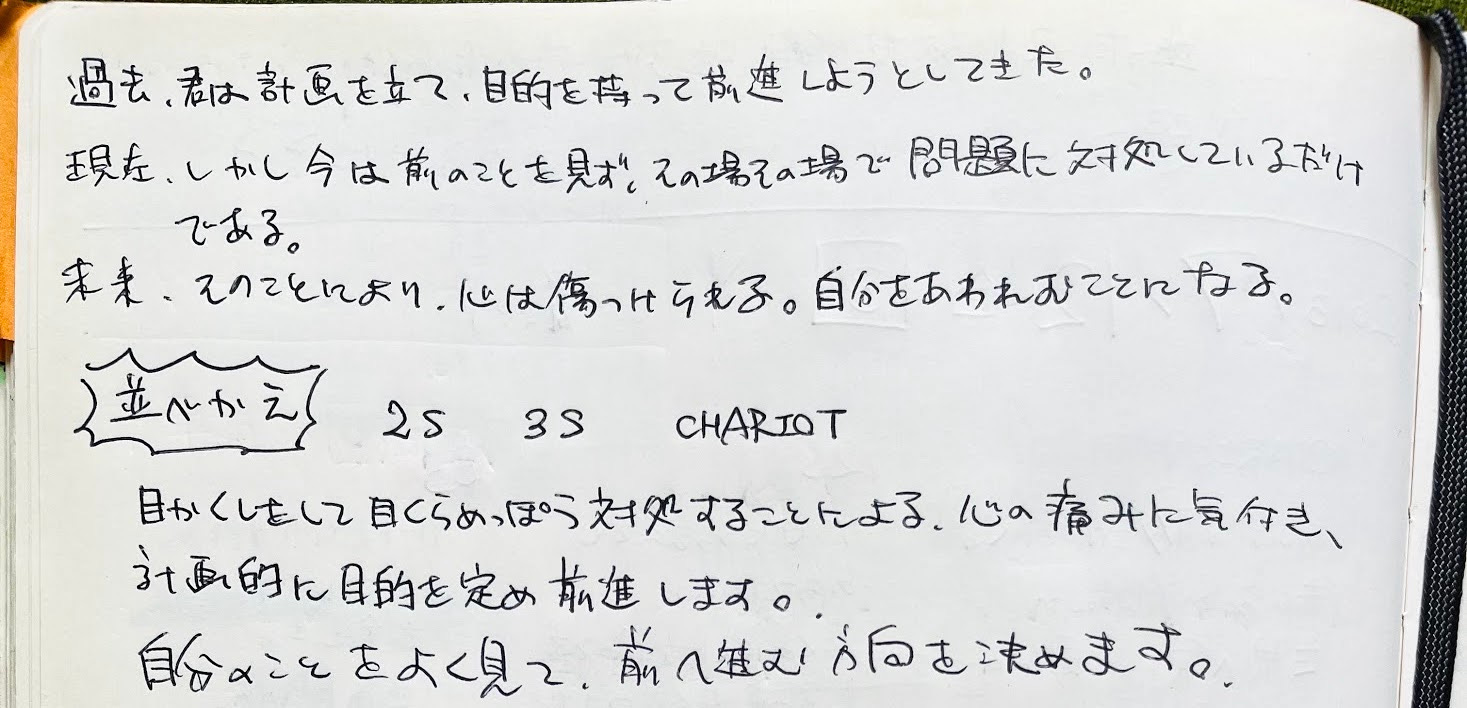 過去、君は計画を立て、目的を持って前進しようとしてきた。
現在、しかし今は前のことを見ず、その場その場で問題に対処しているだけ
である。
未来、そのことにより、心は傷つけられる。自分をあわれむことになる。
並べかえ 2S 3S CHARIOT
目かくしをして目くらめっぽう対処することによる、心の痛みに気付き、
計画的に目的を定め前進します。
自分のことをよく見て、前へ進む方向を決めます。